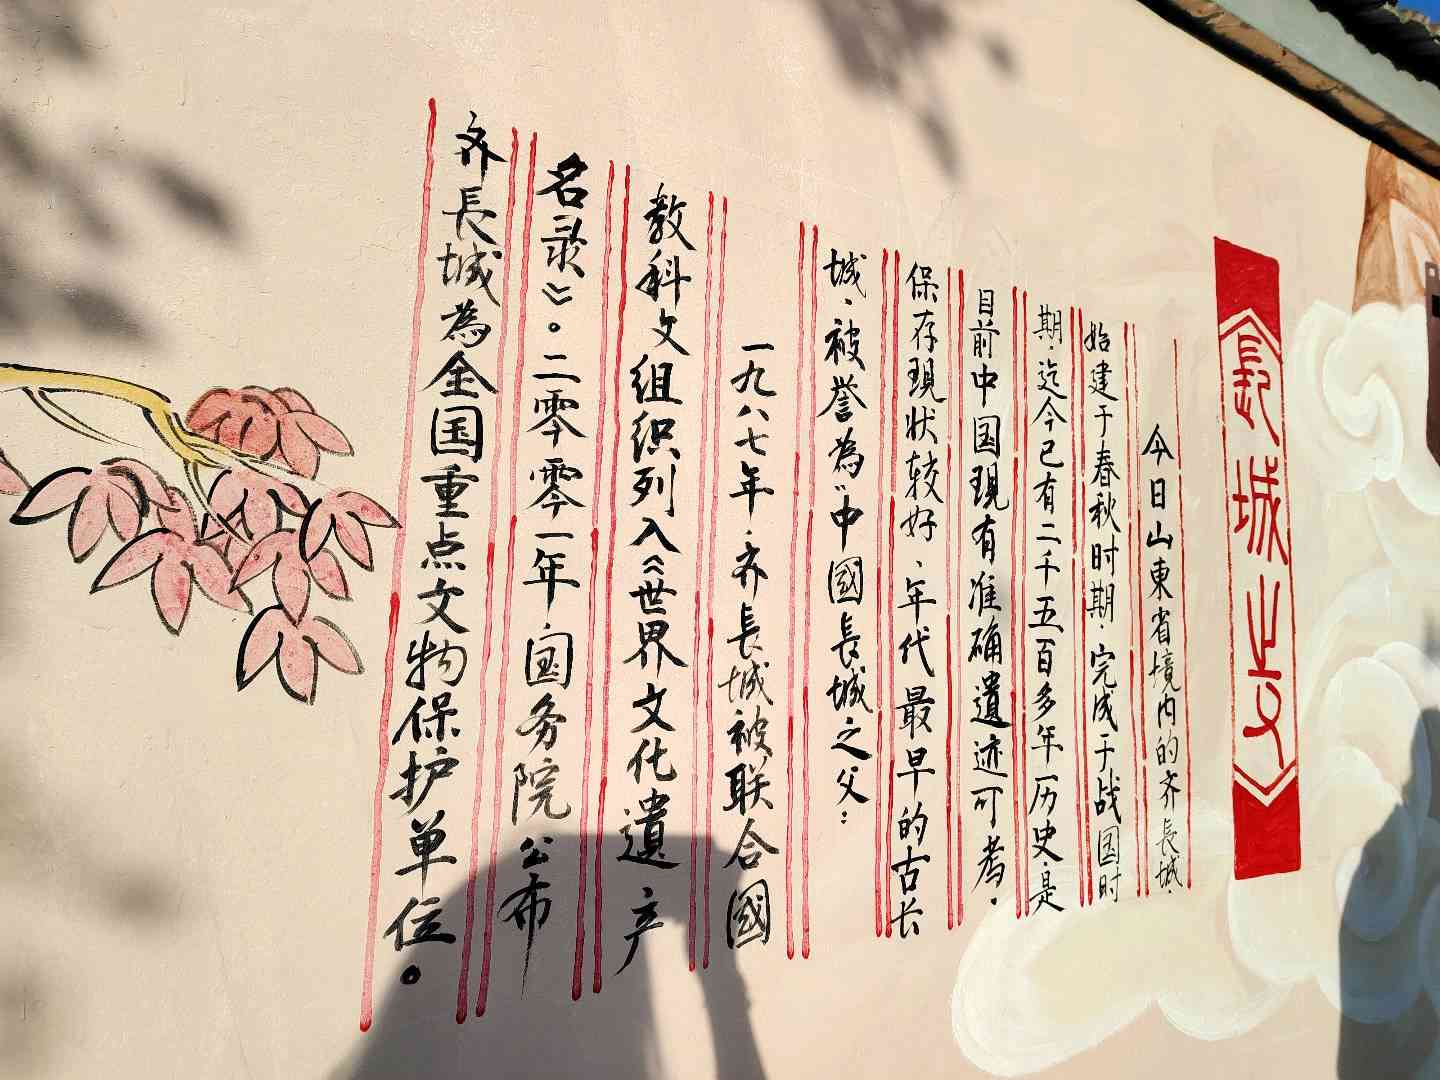 長城之父
今日山東省境内的齐長城.
始建于春秋时期.完成于战国时
期.迄今已有二千五百多年历史.是
目前中国現有准确遺迹可考.
保存現状较好、年代最早的古长
城.被誉為“中國長城之父：
一九八七年.齐長城被联合國
教科文组织列入《世界文化遺产
名录》。二零零一年.国务院公布
齐長城為全国重点文物保护单位。